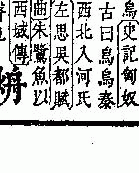 烏史記匈奴
古曰烏烏秦
西北入河氏
左思吳都賦
曲朱鷺魚以
西域傳